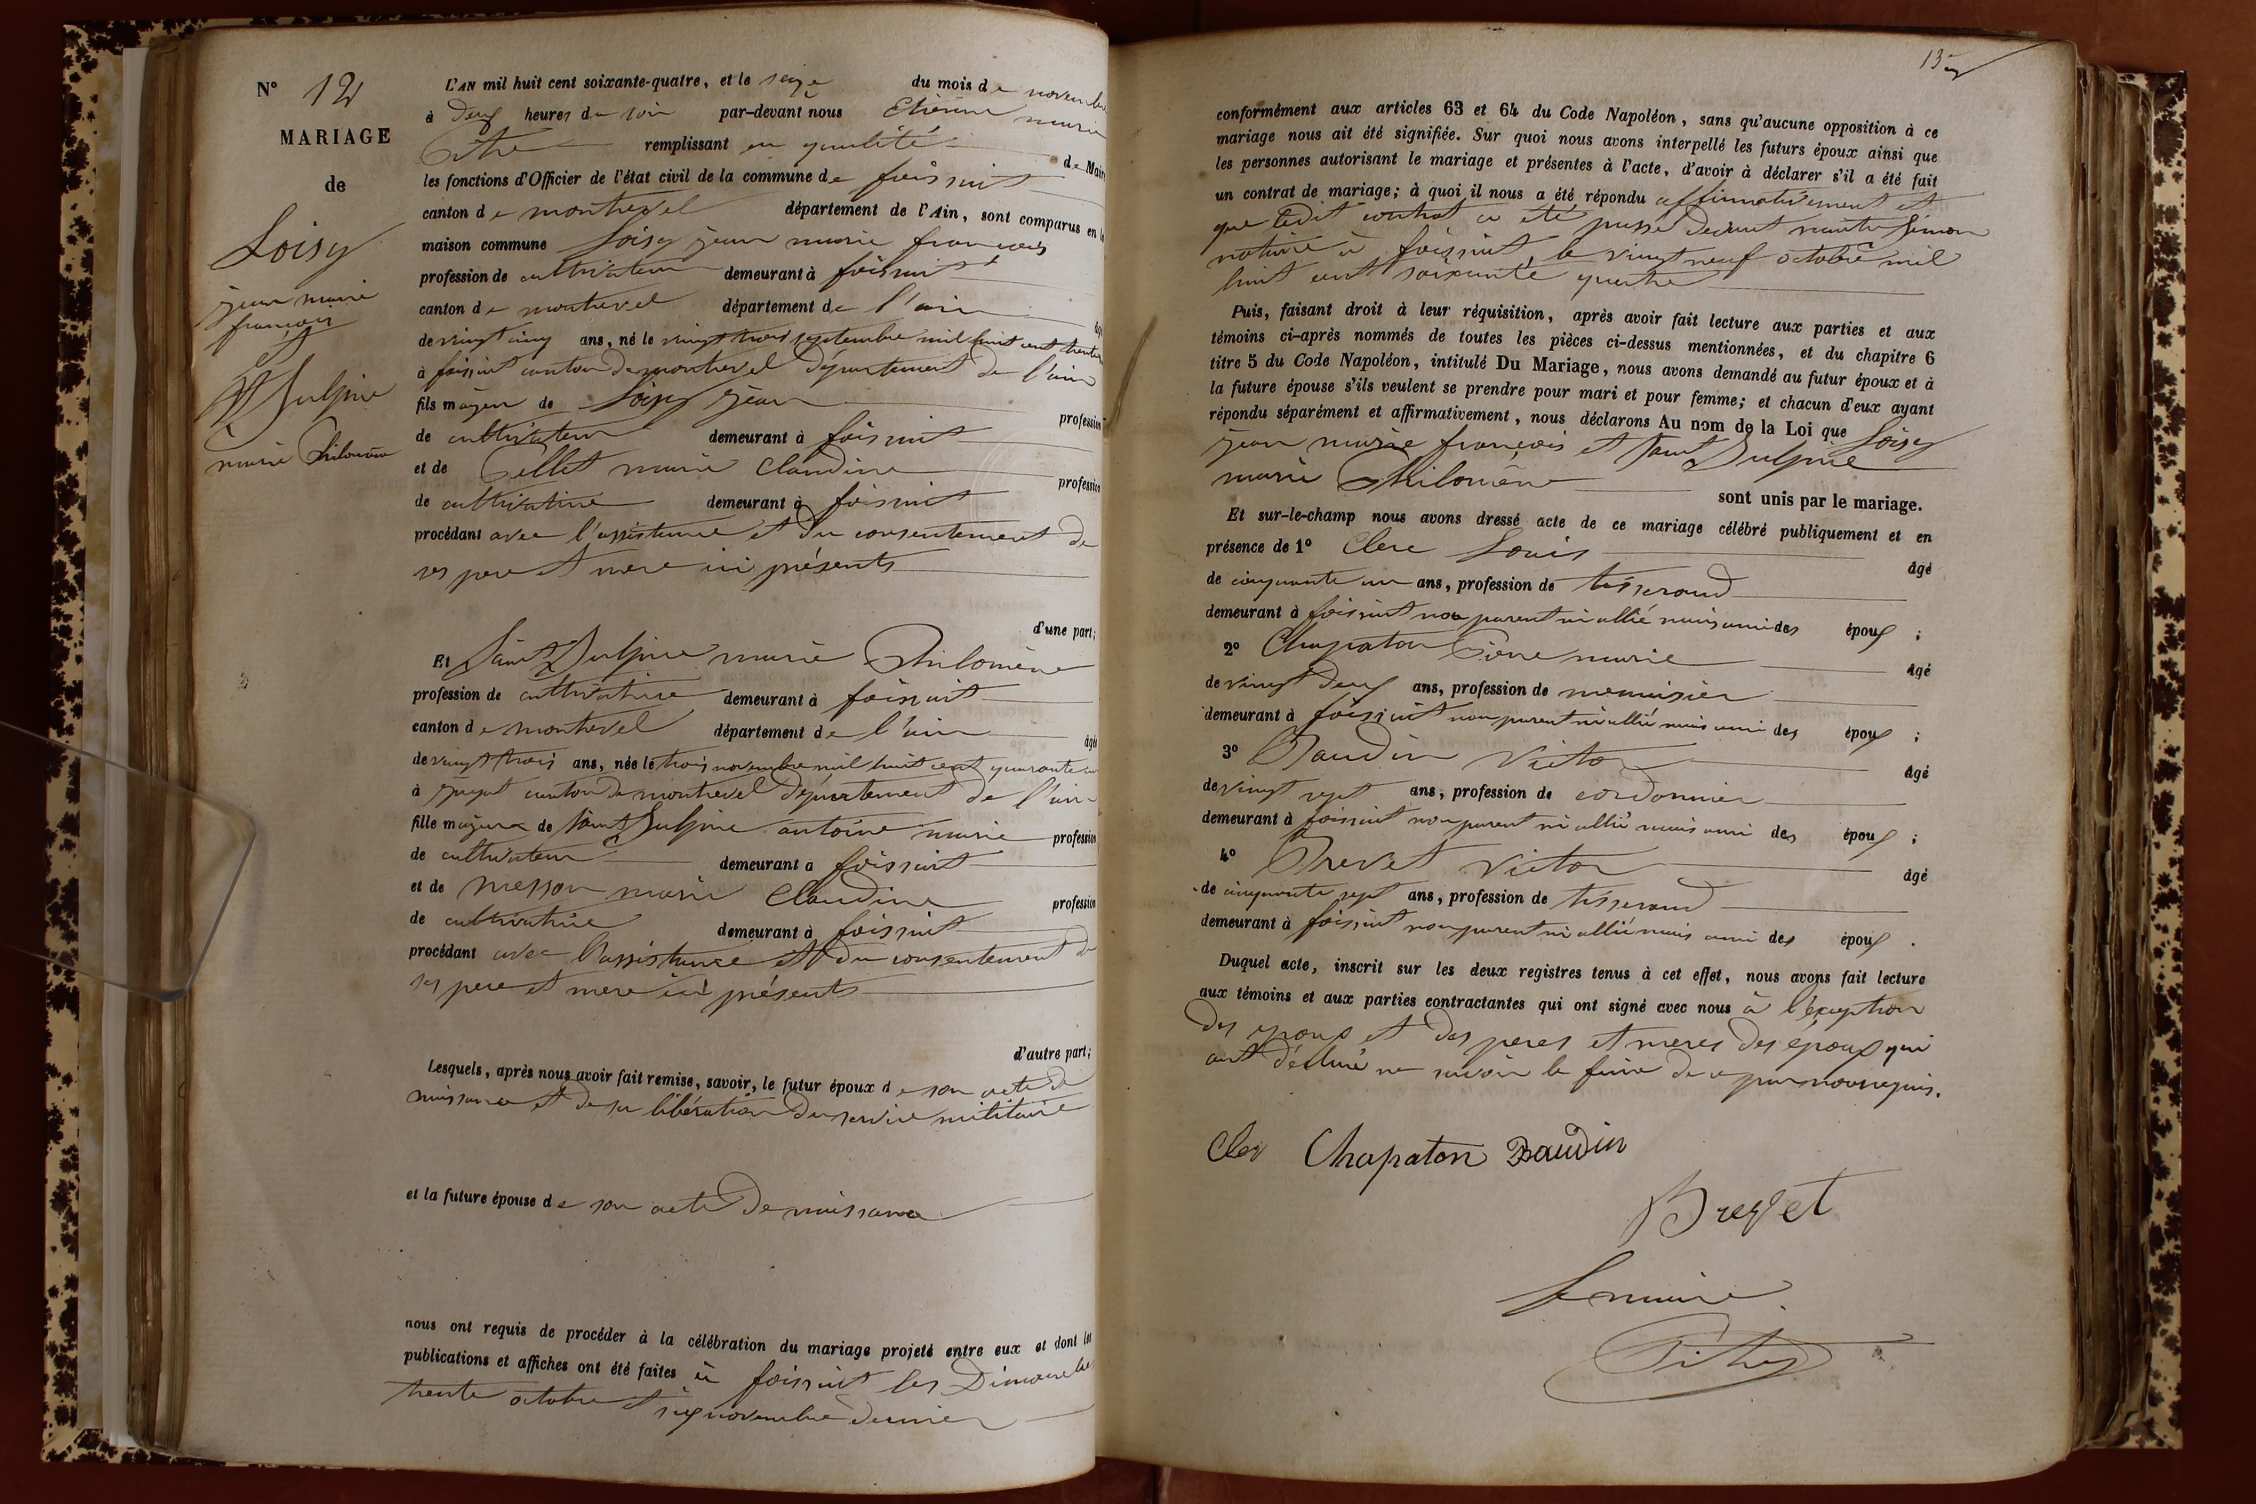 N° 12
MARIAGE
de
Loisy
jean marie
françois
et
St Sulpice
marie Philomène
L'AN mil huit cent soixante-quatre, et le seize du mois de novembre
à deux heures du soir par-devant nous Etienne marie
Pitre remplissant en qualité de Maire
les fonctions d'Officier de l'état civil de la commune de foissiat
canton de montrevel département de l'Ain, sont comparus en la
maison commune Loisy jean marie françois
profession de cultivateur demeurant à foissiat
canton de montrevel département de l'ain âgé
de vingt cinq ans, né le vingt trois septembre mil huit cent trente
à foissiat canton de montrevel département de l'ain
fils majeur de Loisy jean profession
de cultivateur demeurant à foissiat
et de Pellet marie Claudine profession
de cultivatrice demeurant à foissiat
procédant avec l'assistance et du consentement de
ses pere et mere ici présents
d'une part;
Et Saint Sulpice marie Philomène
profession de cultivatrice demeurant à foissiat
canton de montrevel département de l'ain âgée
de vingt trois ans, née le trois novembre mil huit cent quarante un
à jayat canton de montrevel département de l'ain
fille majeure de Saint Sulpice antoine marie profession
de cultivateur demeurant à foissiat
et de messon marie Claudine profession
de cultivatrice demeurant à foissiat
procédant avec l'assistance et du consentement de
ses pere et mere ici présents
d'autre part;
Lesquels, après nous avoir fait remise, savoir, le futur époux de son acte de
naissance et de sa libération du service militaire
et la future épouse de son acte de naissance
nous ont requis de procéder à la célébration du mariage projeté entre eux et dont les
publications et affiches ont été faites à foissiat les Dimanches
trente octobre et six novembre dernier
135
conformément aux articles 63 et 64 du Code Napoléon, sans qu'aucune opposition à ce
mariage nous ait été signifiée. Sur quoi nous avons interpellé les futurs époux ainsi que
les personnes autorisant le mariage et présentes à l'acte, d'avoir à déclarer s'il a été fait
un contrat de mariage; à quoi il nous a été répondu affirmativement et
que ledit contrat a été passé devant maitre Simon
notaire à foissiat, le vingt neuf octobre mil
huit cent soixante quatre
Puis, faisant droit à leur réquisition, après avoir fait lecture aux parties et aux
témoins ci-après nommés de toutes les pièces ci-dessus mentionnées, et du chapitre 6
titre 5 du Code Napoléon, intitulé Du Mariage, nous avons demandé au futur époux et à
la future épouse s'ils veulent se prendre pour mari et pour femme; et chacun d'eux ayant
répondu séparément et affirmativement, nous déclarons Au nom de la Loi que Loisy
jean marie françois et Saint Sulpice
marie Philomène sont unis par le mariage.
Et sur-le-champ nous avons dressé acte de ce mariage célébré publiquement et en
présence de 1° Clerc Louis âgé
de cinquante un ans, profession de tisserand
demeurant à foissiat non parent ni allié mais ami des époux ;
2° Chapaton Pierre marie âgé
de vingt deux ans, profession de menuisier
demeurant à foissiat non parent ni allié mais ami des époux ;
3° Baudin Victor âgé
de vingt sept ans, profession de cordonnier
demeurant à foissiat non parent ni allié mais ami des époux ;
4° Brevet Victor âgé
de cinquante sept ans, profession de tisserand
demeurant à foissiat non parent ni allié mais ami des époux .
Duquel acte, inscrit sur les deux registres tenus à cet effet, nous avons fait lecture
aux témoins et aux parties contractantes qui ont signé avec nous à l'exception
des epoux et des peres et meres des époux qui
ont déclaré ne savoir le faire de ce par nous requis.
Clerc Chapaton Baudin
Brevet
Le maire
Pitre